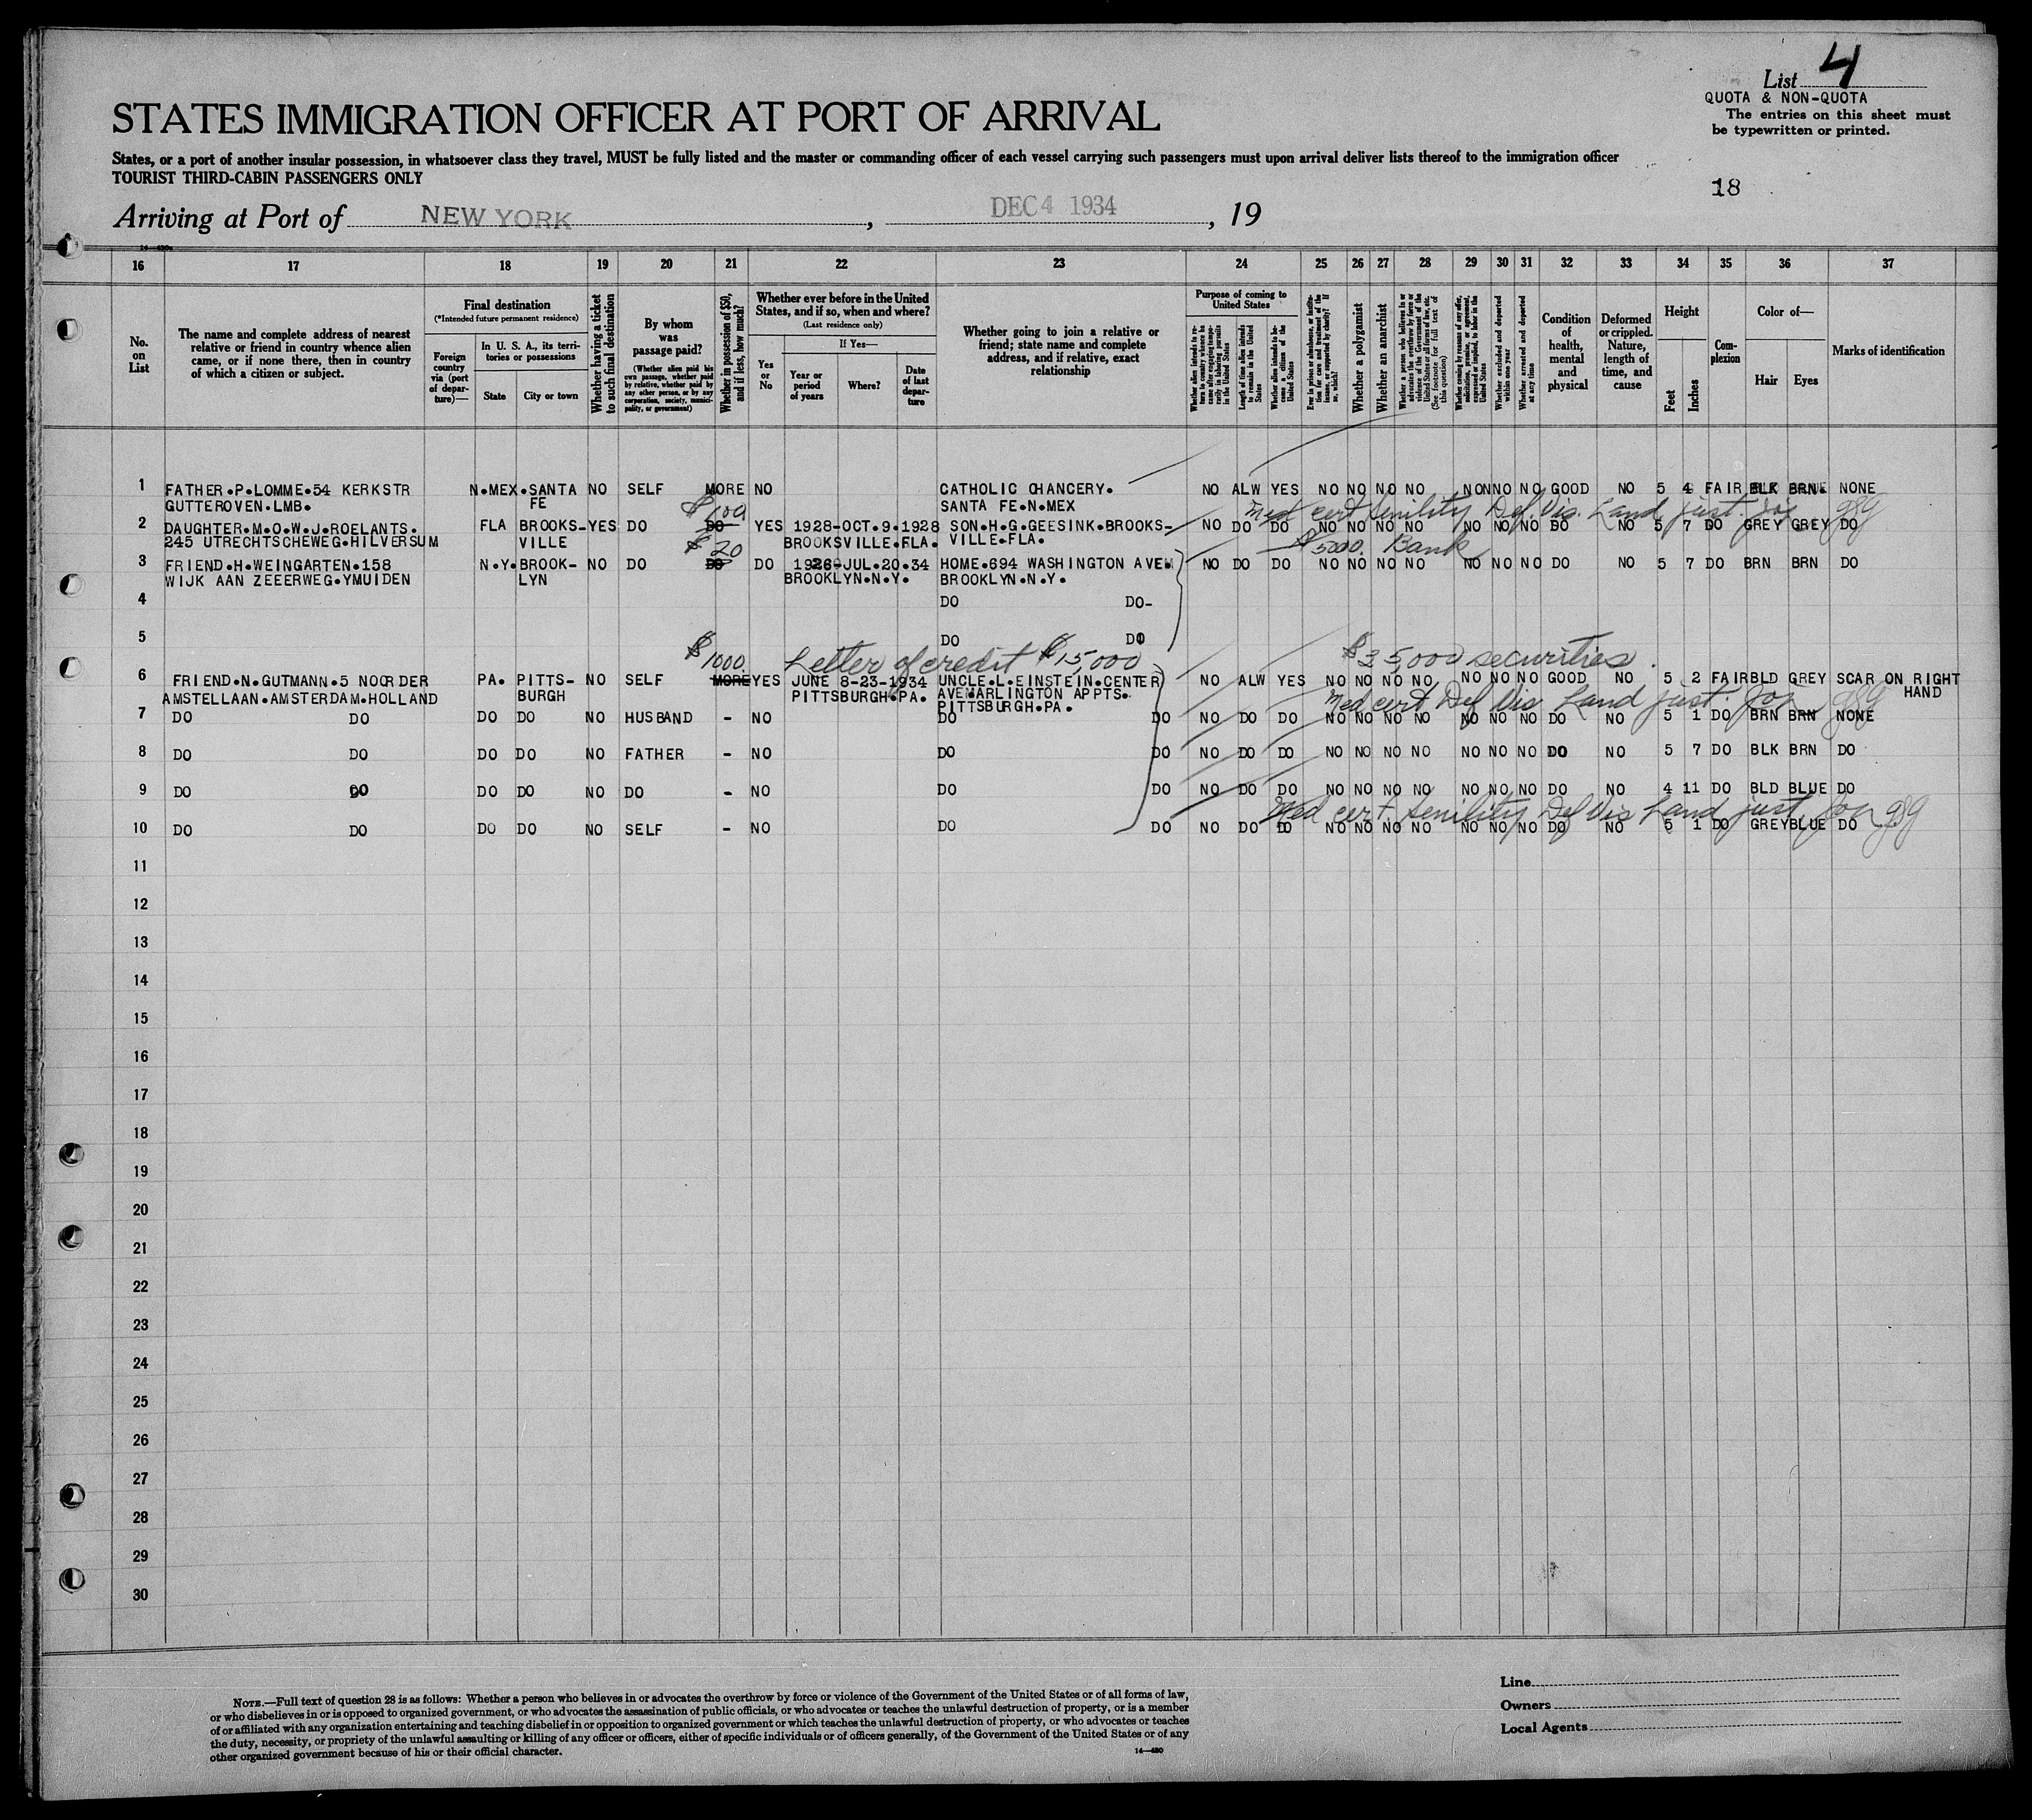 List 4
QUOTA & NON-QUOTA
The entries on this sheet must
be typewritten or printed.
STATES IMMIGRATION OFFICER AT PORT OF ARRIVAL
States, or a port of another insular possession, in whatsoever class they travel, MUST be fully listed and the master or commanding officer of each vessel carrying such passengers must upon arrival deliver lists thereof to the immigration officer
TOURIST THIRD-CABIN PASSENGERS ONLY
18
Arriving at Port of NEW YORK, DEC 4 1934, 19
16 17 18 19 20 21 22 23 24 25 26 27 28 29 30 31 32 33 34 35 36 37
No. on List
The name and complete address of nearest relative or friend in country whence alien came, or if none there, then in country of which a citizen or subject.
Final destination
(*Intended future permanent residence)
Foreign country via (port of departure)—
In U. S. A., its territories or possessions
State
City or town
Whether having a ticket to such final destination
By whom was passage paid?
(Whether alien paid his own passage, whether paid by relative, whether paid by any other person, or by any corporation, society, municipality, or government)
Whether in possession of $50, and if less, how much?
Whether ever before in the United States, and if so, when and where?
(Last residence only)
Yes or No
If Yes—
Year or period of years
Where?
Date of last departure
Whether going to join a relative or friend; state name and complete address, and if relative, exact relationship
Purpose of coming to United States
Whether alien intends to return to country whence he came after engaging temporarily in laboring pursuits in the United States
Length of time alien intends to remain in the United States
Whether alien intends to become a citizen of the United States
Ever in prison or almshouse, or institution for care and treatment of the insane, or supported by charity? If so, which?
Whether a polygamist
Whether an anarchist
Whether a person who believes in or advocates the overthrow by force or violence of the Government of the United States or all forms of law, etc. (See footnote for full text of this question)
Whether coming by reason of any offer, solicitation, promise, or agreement, expressed or implied, to labor in the United States
Whether excluded and deported within one year
Whether arrested and deported at any time
Condition of health, mental and physical
Deformed or crippled. Nature, length of time, and cause
Height
Feet
Inches
Complexion
Color of—
Hair
Eyes
Marks of identification
1 FATHER.P.LOMME.54 KERKSTR N.MEX.SANTA NO SELF MORE NO CATHOLIC CHANCERY. NO ALW YES NO NO NO NO NO NO NO GOOD NO 5 4 FAIR BLK BRN NONE
GUTTEROVEN.LMB. FE SANTA FE.N.MEX
$100 Med cert Senility Def. Vis. Land just.
2 DAUGHTER.M.O.W.J.ROELANTS. FLA BROOKS- YES DO DO YES 1928-OCT.9.1928 SON.H.G.GEESINK.BROOKS- NO DO DO NO NO NO NO NO NO NO DO NO 5 7 DO GREY GREY DO
245 UTRECHTSCHEWEG.HILVERSUM VILLE BROOKSVILLE.FLA. VILLE.FLA.
$20 $5000. Bank
3 FRIEND.H.WEINGARTEN.158 N.Y. BROOK- NO DO DO DO 1926-JUL.20.34 HOME.694 WASHINGTON AVE NO DO DO NO NO NO NO NO NO NO DO NO 5 7 DO BRN BRN DO
WIJK AAN ZEEERWEG.YMUIDEN LYN BROOKLYN.N.Y. BROOKLYN.N.Y.
4 DO DO-
5 DO DO
$1000. Letter of credit $15,000 $35,000 securities.
6 FRIEND.N.GUTMANN.5 NOORDER PA. PITTS- NO SELF MORE YES JUNE 8-23-1934 UNCLE.L.EINSTEIN.CENTER NO ALW YES NO NO NO NO NO NO NO GOOD NO 5 2 FAIR BLD GREY SCAR ON RIGHT
AMSTELLAAN.AMSTERDAM.HOLLAND BURGH PITTSBURGH.PA. AVE.ARLINGTON APPTS. HAND
PITTSBURGH.PA.
Med cert Def Vis Land just.
7 DO DO DO DO NO HUSBAND - NO DO DO NO DO DO NO NO NO NO NO NO NO DO NO 5 1 DO BRN BRN NONE
8 DO DO DO DO NO FATHER - NO DO DO NO DO DO NO NO NO NO NO NO NO DO NO 5 7 DO BLK BRN DO
9 DO DO DO DO NO DO - NO DO DO NO DO DO NO NO NO NO NO NO NO DO NO 4 11 DO BLD BLUE DO
Med cert. Senility Def Vis Land just
10 DO DO DO DO NO SELF - NO DO DO NO DO DO NO NO NO NO NO NO NO DO NO 5 1 DO GREY BLUE DO
11
12
13
14
15
16
17
18
19
20
21
22
23
24
25
26
27
28
29
30
NOTE.—Full text of question 28 is as follows: Whether a person who believes in or advocates the overthrow by force or violence of the Government of the United States or of all forms of law,
or who disbelieves in or is opposed to organized government, or who advocates the assassination of public officials, or who advocates or teaches the unlawful destruction of property, or is a member
of or affiliated with any organization entertaining and teaching disbelief in or opposition to organized government or which teaches the unlawful destruction of property, or who advocates or teaches
the duty, necessity, or propriety of the unlawful assaulting or killing of any officer or officers, either of specific individuals or of officers generally, of the Government of the United States or of any
other organized government because of his or their official character.
14—480
Line
Owners
Local Agents